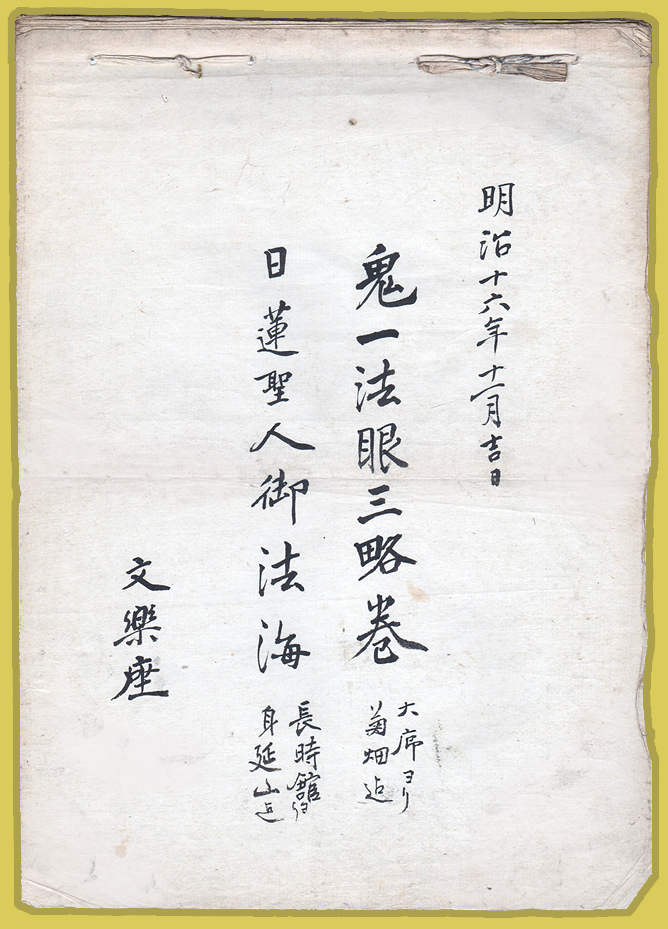 明治十六年十一月吉日
鬼一法眼三略巻
大席ヨリ
菊畑迠
日蓮聖人御法海
長時館ヨリ
身延山迠
文樂座